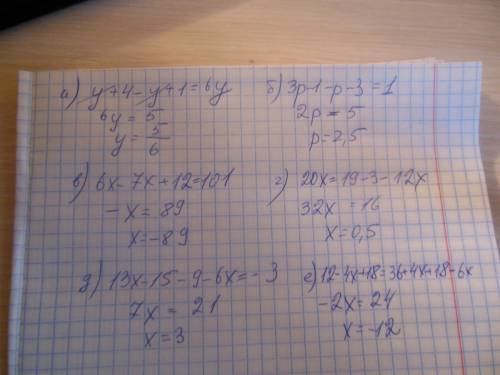 а) y+4-y+1=6y
6y = 5
y = 5/6
б) 3p-1-p-3=1
2p = 5
p=2,5
в) 6x-7x+12=101
-x = 89
x=-89
г) 20x=19-3-12x
32x = 16
x=0,5
д) 13x-15-9-6x=-3
7x = 21
x=3
е) 12-4x+18=36+4x+18-6x
-2x=24
x=-12